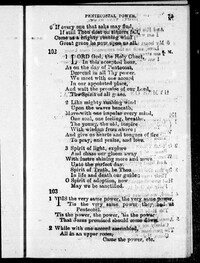 PENTECOSTAL POWER.
6 If every one that asks may find,
If still Thou dost on sinners fall,
Come as a mighty rushing wind;
Great grace be now upon us all.
102
LORD God, the Holy Ghost,
In this accepted hour,
As on the day of Pentecost,
Descend in all Thy power.
We meet with one accord
In our appointed place,
And wait the promise of our Lord,
The Spirit of all grace.
2 Like mighty rushing wind
Upon the waves beneath,
Move with one impulse every mind,
One soul, one feeling, breathe:
The young, the old, inspire
With wisdom from above;
And give us hearts and tongues of fire
To pray, and praise, and love.
3 Spirit of light, explore
And chase our gloom away
With lustre shining more and more
Unto the perfect day.
Spirit of Truth, be Thou
In life and death our guide;
O Spirit of adoption, now
May we be sanctified.
103
1 'TIS the very same power, the very same power,
'Tis the very same power they had at
Pentecost,
'Tis the power, the power, 'tis the power
That Jesus promised should come down.
2 While with one accord assembled,
All in an upper room,
Came the power, etc.